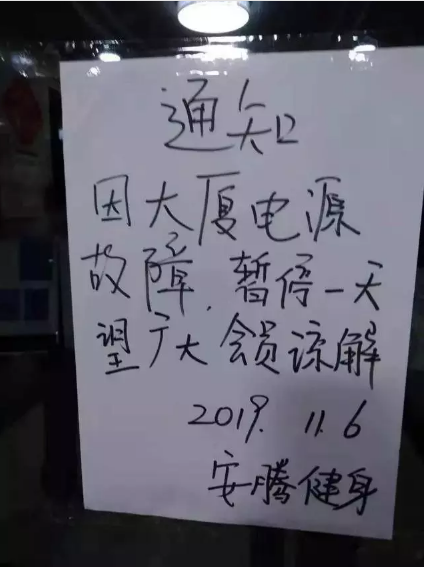 通知
因大厦电源
故障,暂停一天
望广大会员谅解
2019.11.6
安腾健身